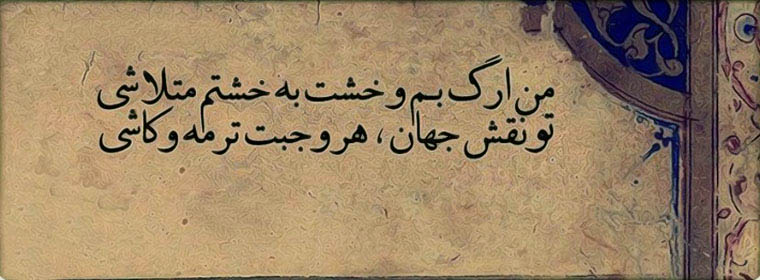 من ارگ بم و خشت به خشتم متلاشی
تو نقش جهان، هر وجبت ترمه و کاشی